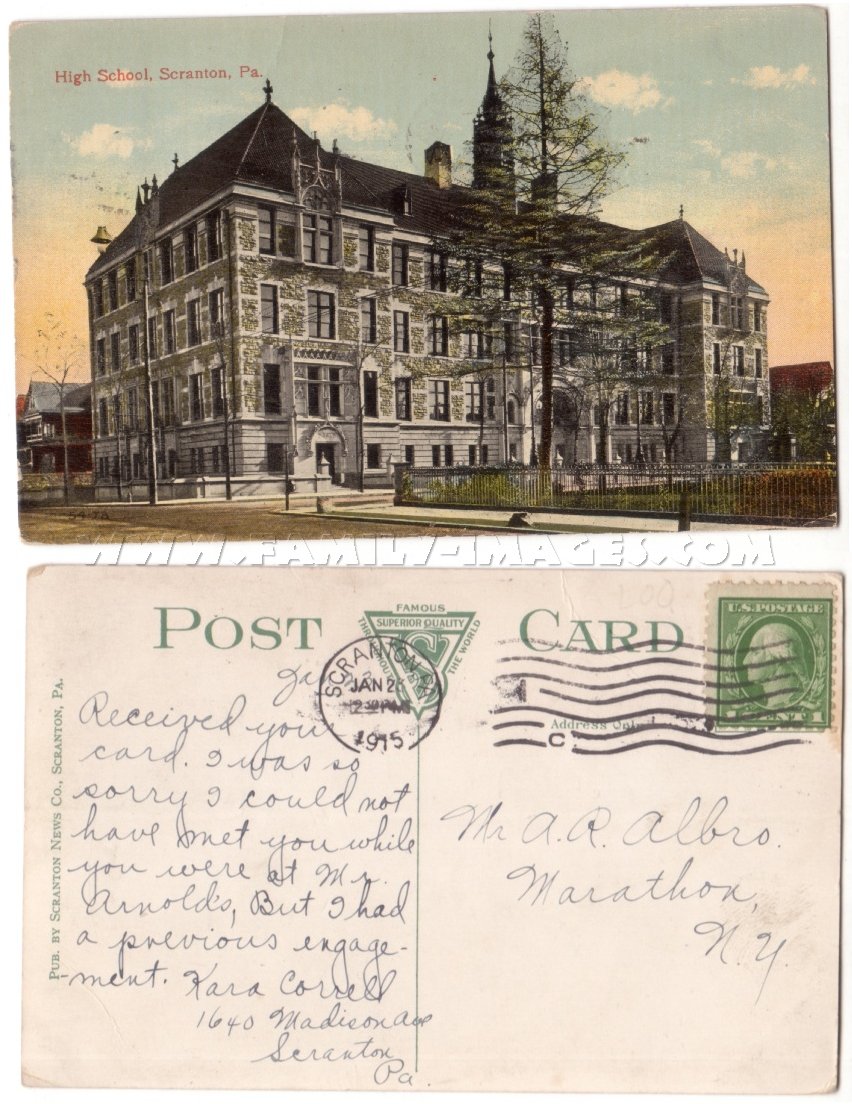 High School, Scranton, Pa.
WWW.FAMILY-IMAGES.COM
POST CARD
FAMOUS
SUPERIOR QUALITY
THROUGHOUT
THE WORLD
U.S. POSTAGE
CENT 1
SCRANTON, PA
JAN 2
1915
Address Only
C
PUB. BY SCRANTON NEWS CO., SCRANTON, PA.
Received your
card. I was so
sorry I could not
have met you while
you were at Mr.
Arnold's, But I had
a previous engage-
-ment. Kara Correll
1640 Madison Ave
Scranton
Pa.
Mr A. R. Albro.
Marathon,
N. Y.